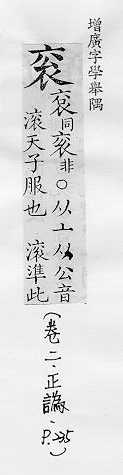 增廣字學舉隅
衮
袞同衮非○从亠从公音
滚天子服也 滚準此
(卷二.正譌.P.235)